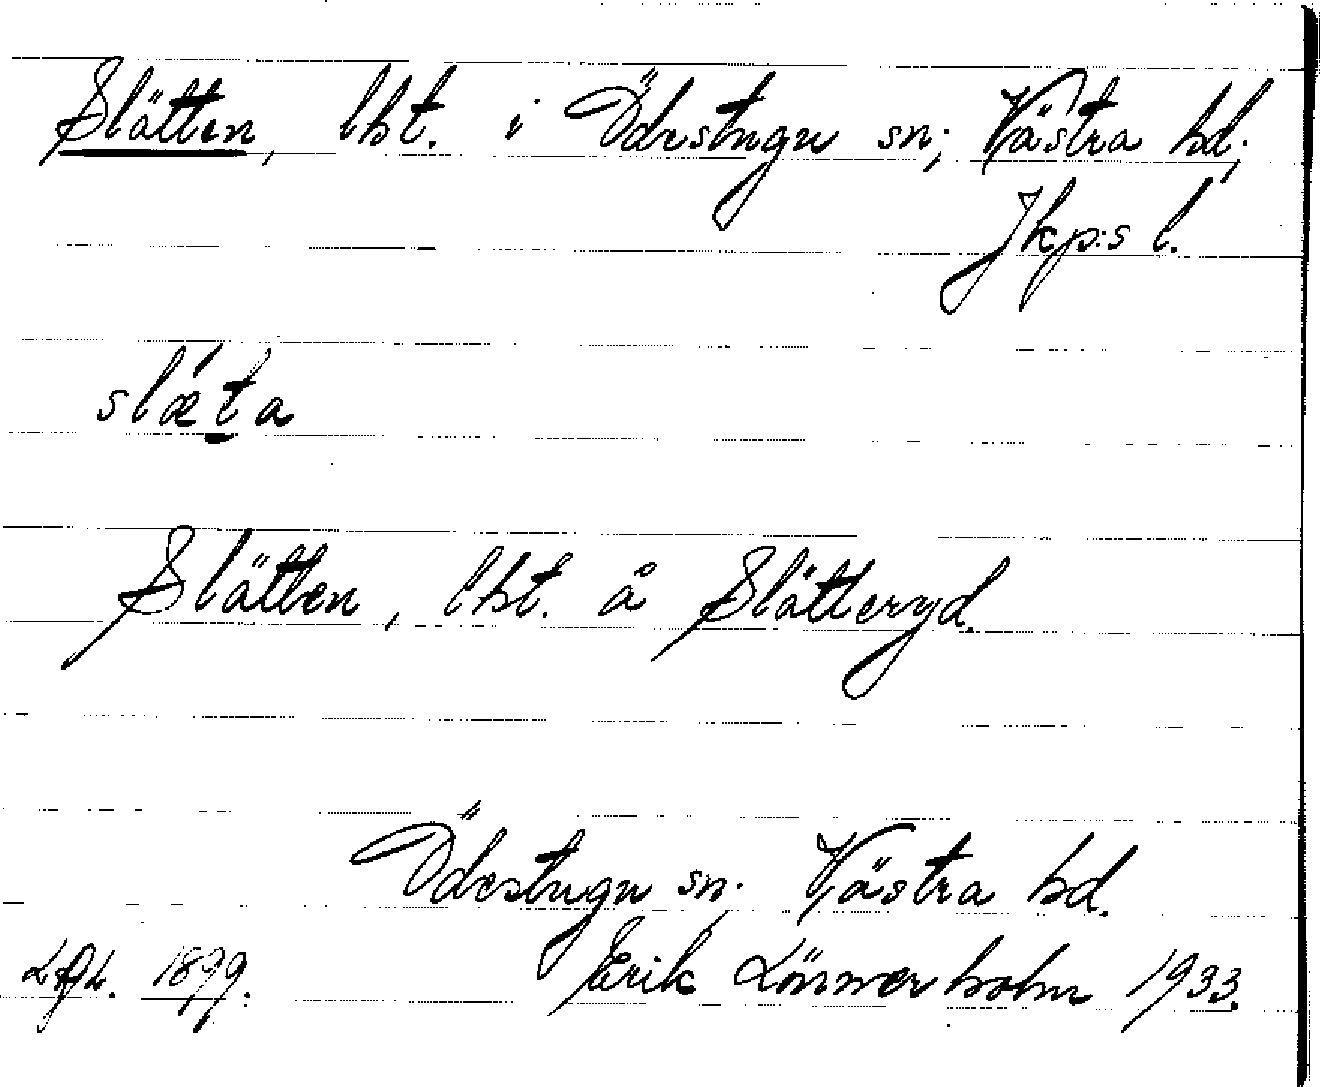 Slätten, lht. i Ödestugu sn; Västra hd;
Jkp:s l.
slæ´ta
Slätten, lht. å Slätteryd.
Ödestugu sn. Västra hd.
1899. Erik Lönnerholm 1933.